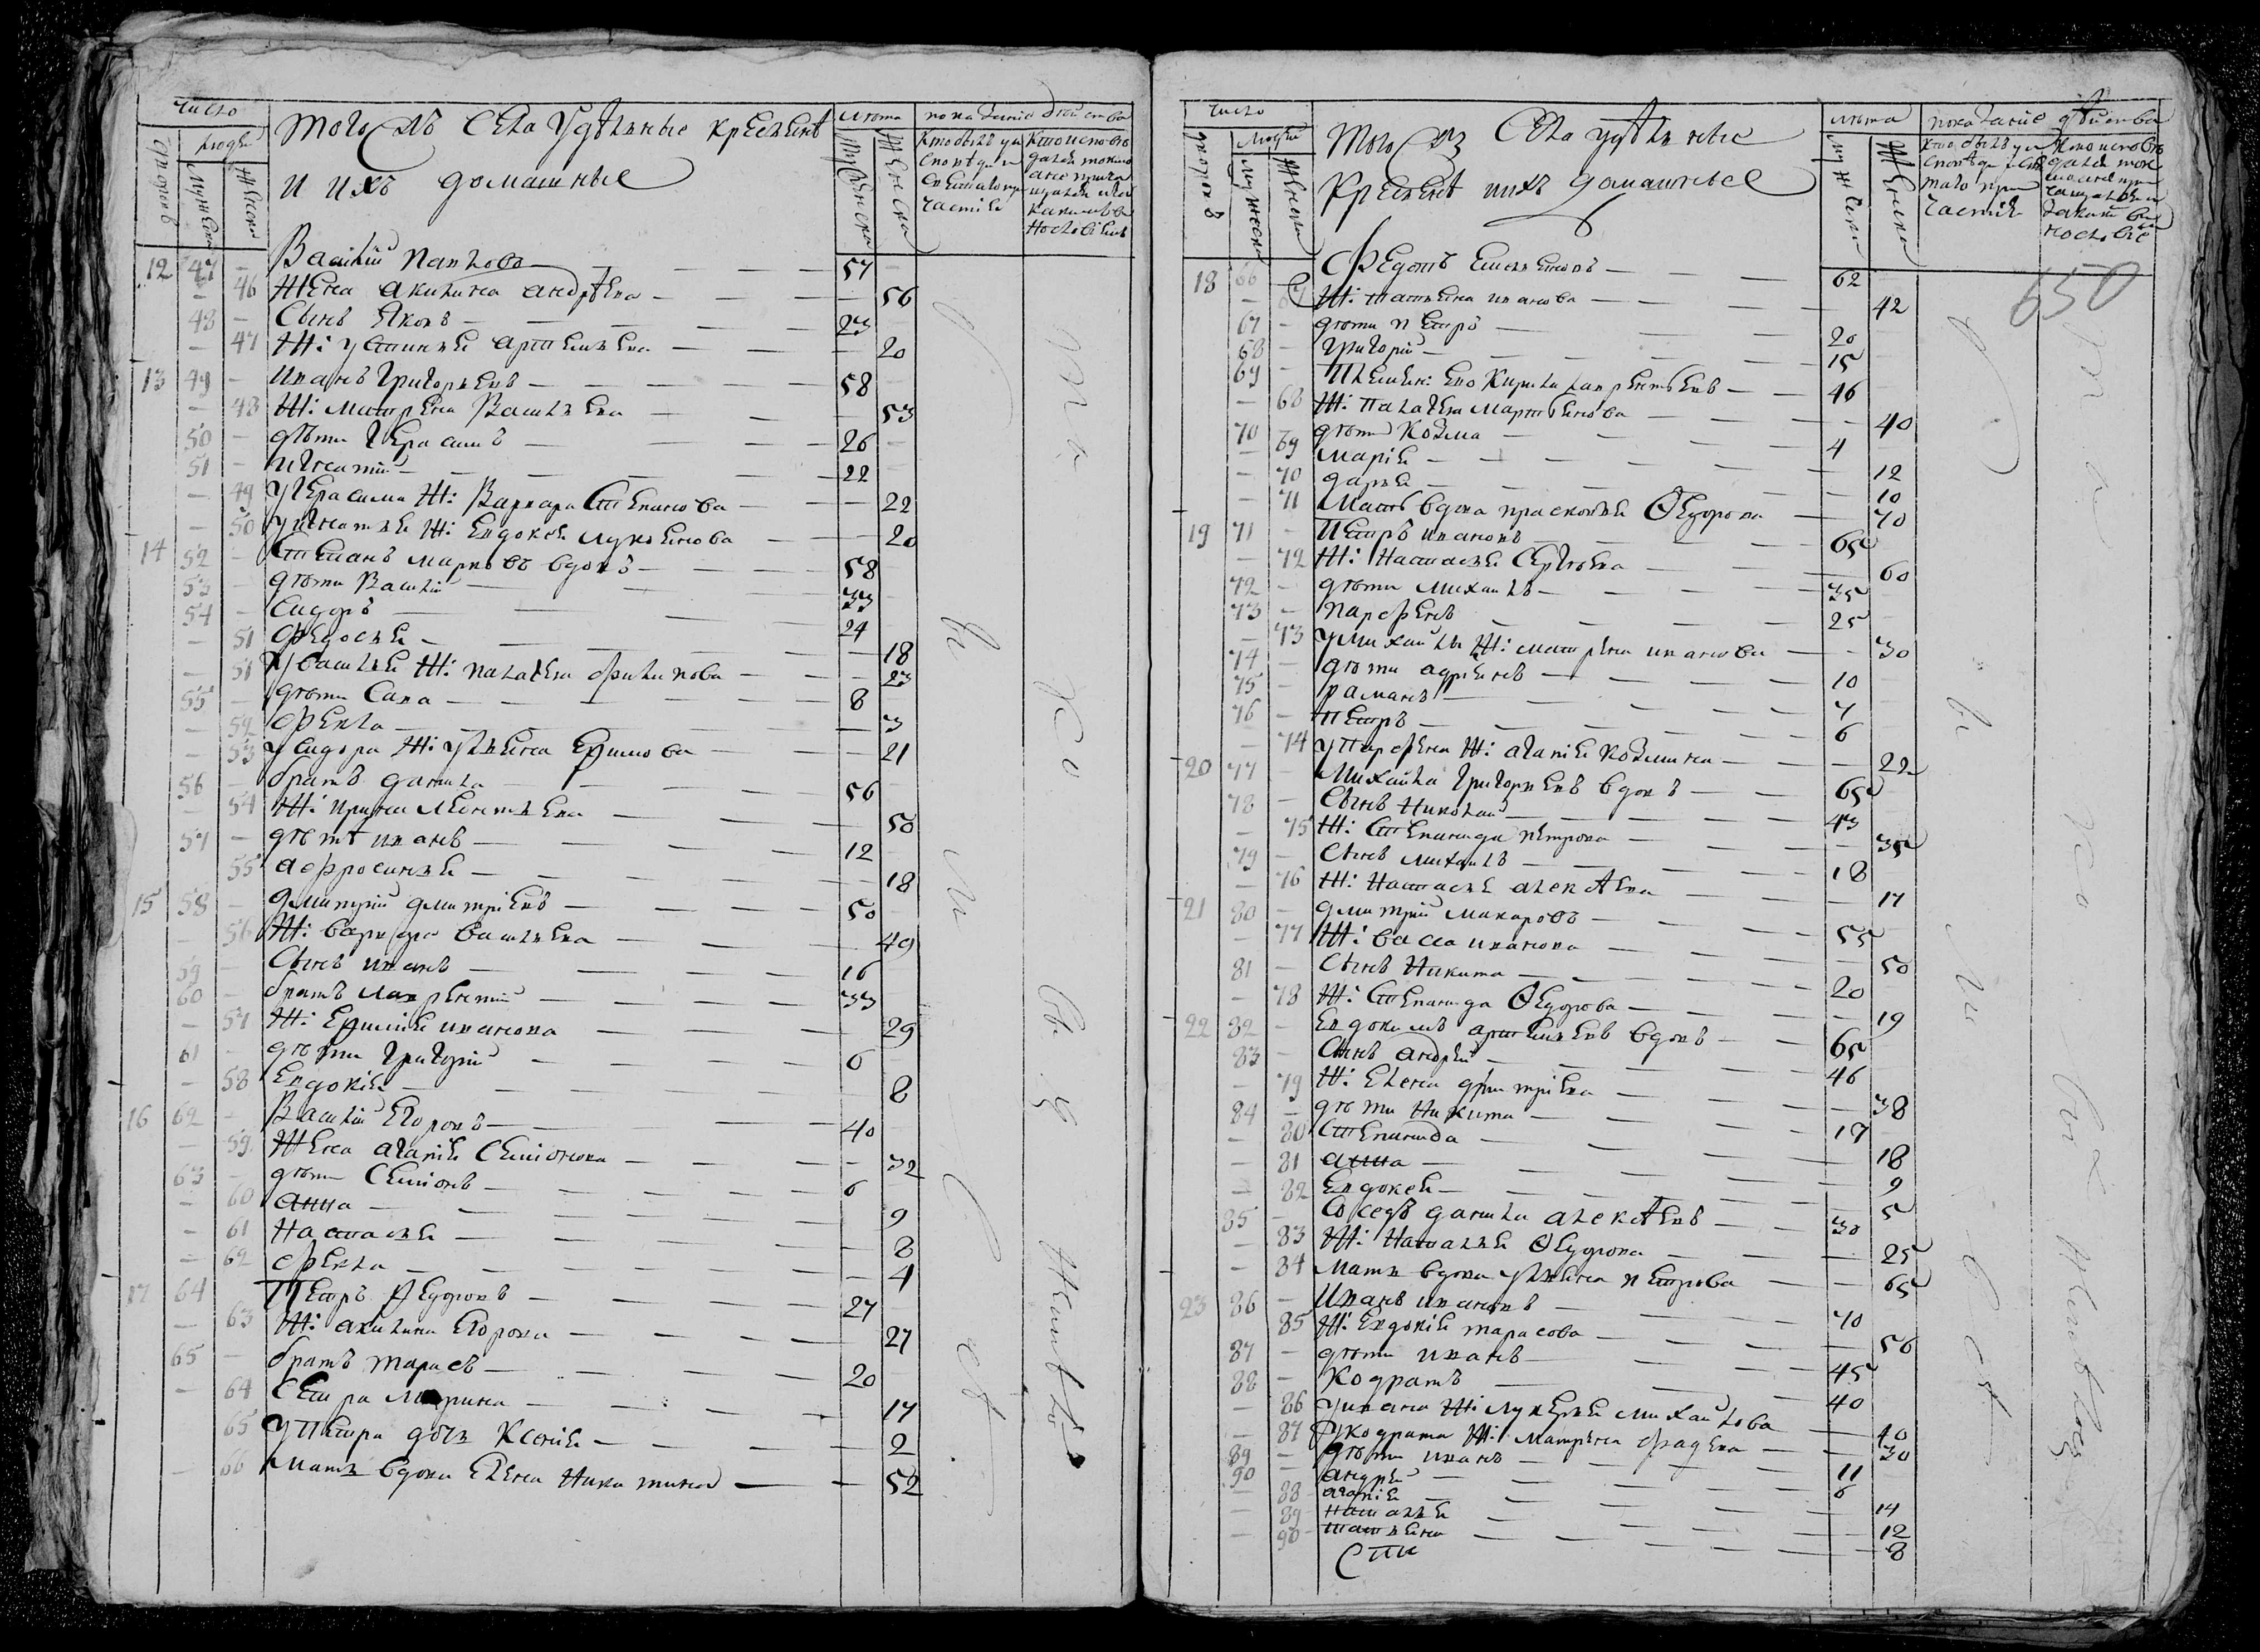 число
дворовъ
людей
мужеска
женска
Того жъ села удѣльные крестьянѣ
и ихъ домашные
лѣта
мужеска
женска
показаніе дѣйства
12 47 - Василій Павловъ - 57 -
- 46 жена Акилина Андрѣева - - 56
48 - сынъ Яковъ - 23
- 47 ж: Устинья Артемьева - - 20
13 49 - Иванъ Григорьевъ - 58
- 48 ж: Матрена Васильева - - 53
50 - дѣти Герасимъ - 26 -
51 - Игнатій - 22
- 49 у Герасима ж: Варвара Степанова - - 22
- 50 у Игнатья ж: Евдокея Лукьянова - - 20
14 52 - Степанъ Марковъ вдовъ - 58
53 - дѣти Василій - 33
54 - Сидоръ - 24
- 51 Федосья - - 18
- 51 у Василья ж: Палагея Филипова - - 23
55 - дѣти Сава - 8
- 52 Фекла - - 3
- 53 у Сидора ж: Ульяна Ефимова - - 21
56 - братъ Данила - 56
- 54 ж: Ирина Мелентьева - - 50
57 - дѣтѣ Иванъ - 12
55 Афросинья - - 18
15 58 - Дмитрій Дмитріевъ - 50
- 56 ж: Варвара Васильева - - 49
59 - сынъ Иванъ - 16
60 - братъ Лаврентій - 33
- 57 ж: Ефимія Иванова - - 29
61 - дѣти Григорій - 6
- 58 Евдокія - - 8
16 62 - Василій Егоровъ - 40
- 59 жена Агапія Семіонова - - 32
63 - дѣти Семіонъ - 6
- 60 Анна - - 9
- 61 Настасья - - 8
- 62 Фекла - - 4
17 64 - Петръ Федоровъ - 27
- 63 ж: Акилина Егорова - - 27
65 - братъ Тарасъ - 20
- 64 сестра Марина - - 17
65 у Петра дочь Ксенія - - 2
- 66 мать вдова Елена Никитина - - 52
число
дворовъ
людей
мужеска
женска
Того жъ села удѣльные
крестьянѣ и ихъ домашные
лѣта
мужеска
женска
показаніе дѣйства
650
18 66 - Федотъ Емельяновъ - 62
- 67 ж: Татьяна Иванова - - 42
67 - дѣти Петръ - 20
68 - Григорій - 15
69 - племян: ево Кирила Лаврентьевъ - 46
- 68 ж: Палагея Мартынова - - 40
70 - дѣти Козма - 4
- 69 Марія - - 12
- 70 Дарья - - 10
- 71 мать вдова Прасковья Ѳедорова - 70
19 71 - Петръ Ивановъ - 65
- 72 ж: Настасья Сергѣева - - 60
72 - дѣти Михаилъ - 35
73 - Парфенъ - 25
- 73 у Михайлы ж: Матрена Иванова - - 30
74 - дѣти Адріянъ - 10
75 - Раманъ - 7
76 - Петръ - 6
- 74 у Парфена ж: Агапія Козмина - - 22
20 77 - Михайла Григорьевъ вдовъ - 65
78 - сынъ Николай - 43
- 75 ж: Степанида Петрова - - 35
79 - сынъ Михаилъ - 18
- 76 ж: Настасья Алексѣева - - 17
21 80 - Дмитрій Макаровъ - 55
- 77 ж: Васса Иванова - - 50
81 - сынъ Никита - 20
- 78 ж: Степанида Ѳедорова - - 19
22 82 - Евдокимъ Артемьевъ вдовъ - 65
83 - сынъ Андрей - 46
- 79 ж: Елена Дмитріева - - 38
84 - дѣти Никита - 17
- 80 Степанида - - 18
- 81 Анна - - 9
- 82 Евдокея - - 5
85 - соседъ Данила Алексѣевъ - 30
- 83 ж: Наталья Ѳедорова - - 25
- 84 мать вдова Ульяна Петрова - - 65
23 86 - Иванъ Ивановъ - 70
85 ж: Евдокія Тарасова - - 56
87 - дѣти Иванъ - 45
88 - Кодратъ - 40
- 86 у Ивана ж: Лукерья Михайлова - - 40
- 87 у Кодрата ж: Матрена Фадеева - - 30
89 - дѣти Иванъ - 11
90 - Андрей - 6
- 88 Агапія - - 14
- 89 Наталья - - 12
- 90 Татьяна - - 8